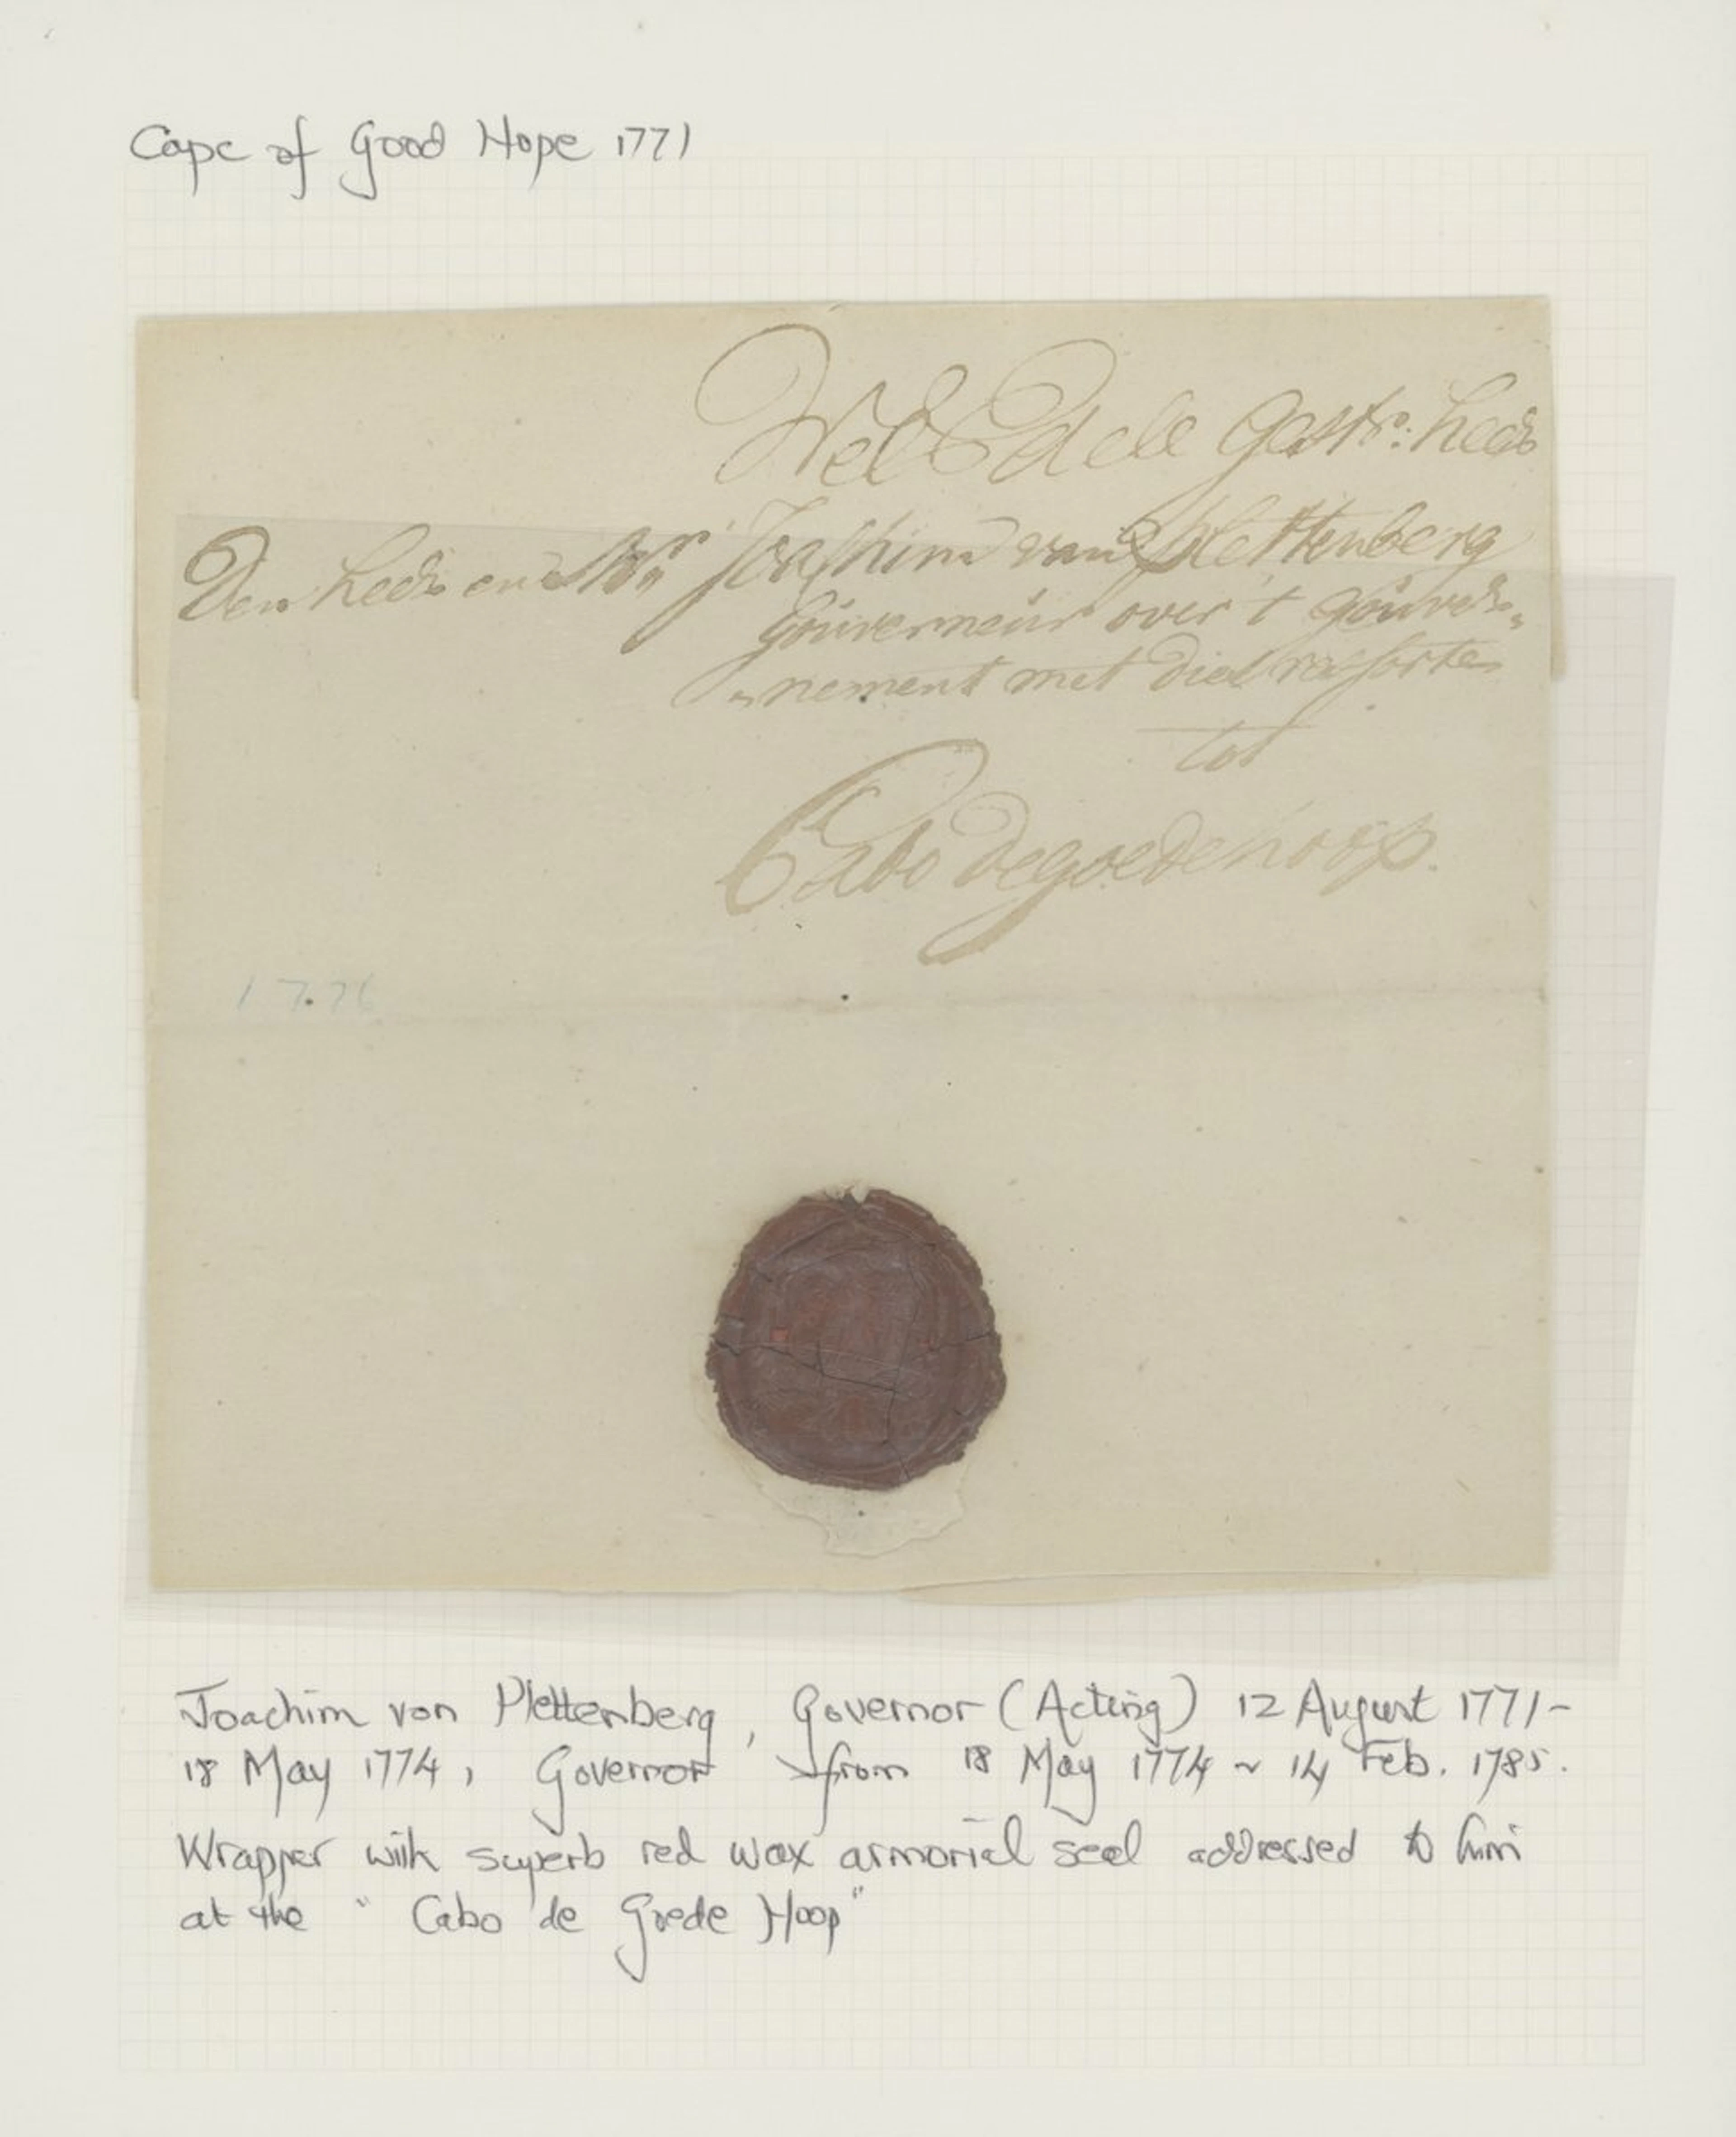 Cape of Good Hope 1771
Wel Edele Gestr: heer
Den heer en Mr Joachim van Plettenberg
Gouverneur over 't gouver„
„nement met dies ressorte
tot
Cabo de goede hoop.
1776
Joachim von Plettenberg, Governor (Acting) 12 August 1771-
18 May 1774, Governor from 18 May 1774 ~ 14 Feb. 1785.
Wrapper with superb red wax armorial seal addressed to him
at the " Cabo de Goede Hoop"